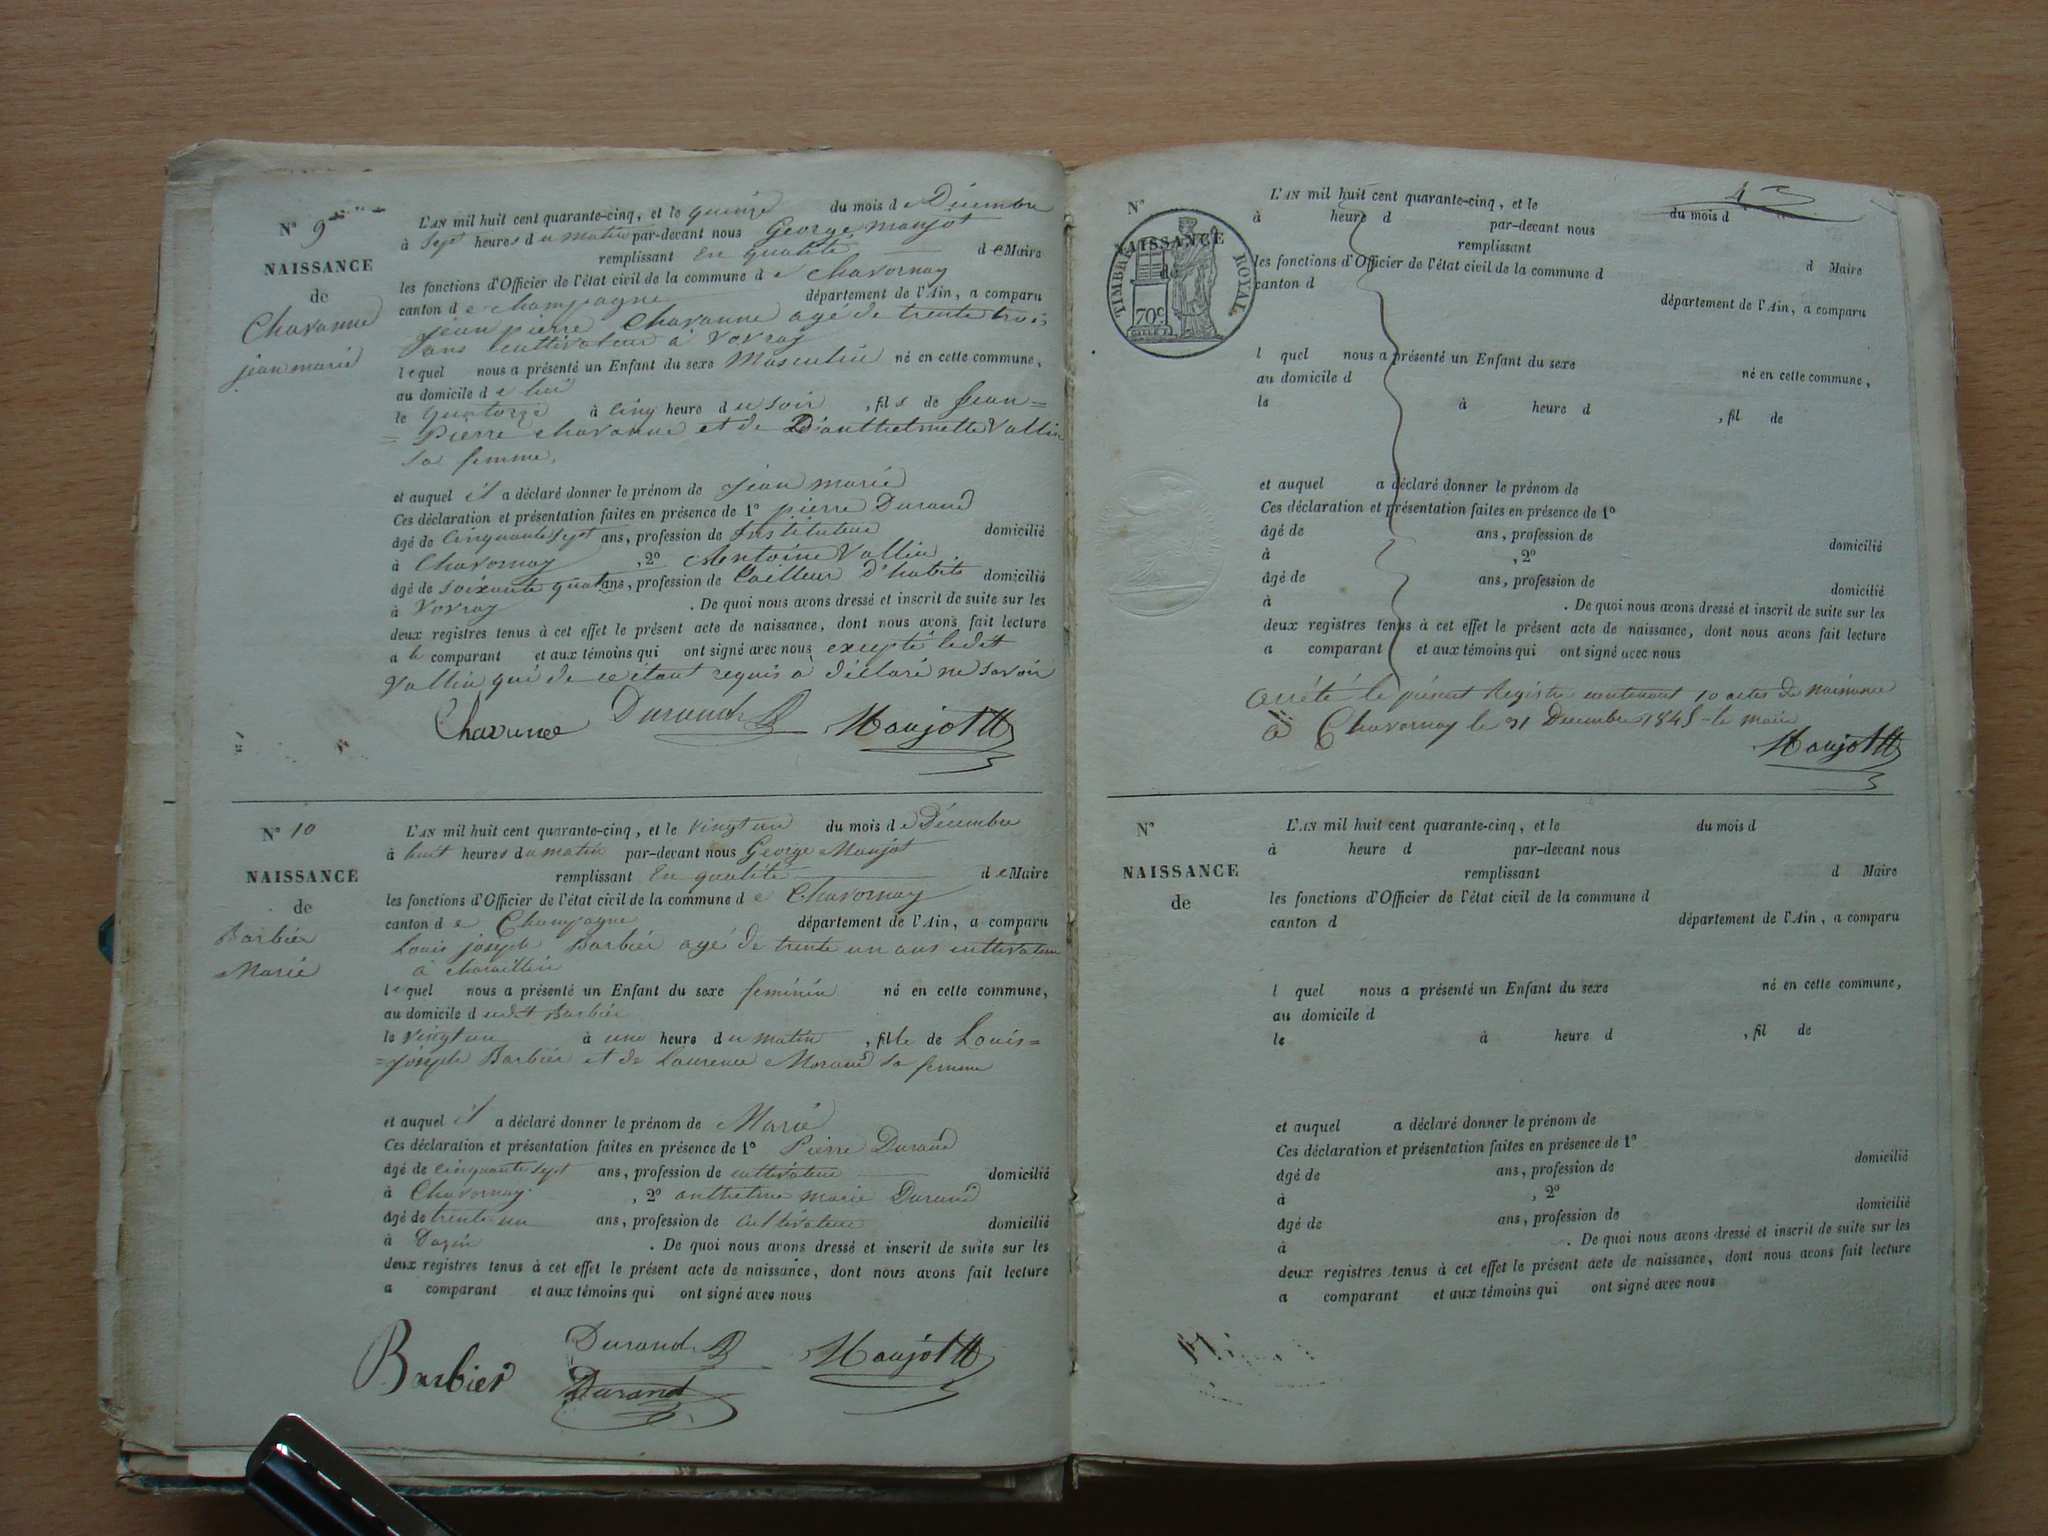 N° 9
NAISSANCE
de
Chavanne
jean marie
L'AN mil huit cent quarante-cinq, et le quinze du mois de Décembre
à sept heures du matin par-devant nous George maujot
remplissant en qualité de Maire
les fonctions d'Officier de l'état civil de la commune de Chavornay
canton de champagne département de l'Ain, a comparu
jean pierre Chavanne agé de trente trois
ans cultivateur à Vovray
lequel nous a présenté un Enfant du sexe Masculin né en cette commune,
au domicile de lui
le quatorze à cinq heure du soir, fils de Jean=
=pierre chavanne et de D'anthelmette Vallin
sa femme,
et auquel il a déclaré donner le prénom de jean marie
Ces déclaration et présentation faites en présence de 1° pierre Durand
âgé de cinquante sept ans, profession de Instituteur domicilié
à Chavornay, 2° Antoine Vallin
âgé de soixante quatre ans, profession de tailleur d'habits domicilié
à Vovray. De quoi nous avons dressé et inscrit de suite sur les
deux registres tenus à cet effet le présent acte de naissance, dont nous avons fait lecture
a le comparant et aux témoins qui ont signé avec nous excepté ledit
Vallin qui de ce étant requis a déclaré ne savoir
Chavanne Durand Maujot
N° 10
NAISSANCE
de
Barbier
Marie
L'AN mil huit cent quarante-cinq, et le vingt un du mois de Décembre
à huit heures du matin par-devant nous George Maujot
remplissant en qualité de Maire
les fonctions d'Officier de l'état civil de la commune de Chavornay
canton de Champagne département de l'Ain, a comparu
Louis joseph Barbier agé de trente un ans cultivateur
à
lequel nous a présenté un Enfant du sexe feminin né en cette commune,
au domicile dudit Barbier
le vingt un à une heure du matin, fille de Louis=
=joseph Barbier et de Laurence Morand sa femme
et auquel il a déclaré donner le prénom de Marie
Ces déclaration et présentation faites en présence de 1° Pierre Durand
âgé de cinquante sept ans, profession de cultivateur domicilié
à Chavornay, 2° anthelme marie Durand
âgé de trente un ans, profession de cultivateur domicilié
à. De quoi nous avons dressé et inscrit de suite sur les
deux registres tenus à cet effet le présent acte de naissance, dont nous avons fait lecture
a comparant et aux témoins qui ont signé avec nous
Barbier Durand Maujot
Durand
N°
NAISSANCE
de
TIMBRE ROYAL
70c
L'AN mil huit cent quarante-cinq, et le du mois d
à heure d par-devant nous
remplissant d Maire
les fonctions d'Officier de l'état civil de la commune d
canton d département de l'Ain, a comparu
l quel nous a présenté un Enfant du sexe né en cette commune,
au domicile d
le à heure d, fil de
et auquel a déclaré donner le prénom de
Ces déclaration et présentation faites en présence de 1°
âgé de ans, profession de domicilié
à, 2°
âgé de ans, profession de domicilié
à. De quoi nous avons dressé et inscrit de suite sur les
deux registres tenus à cet effet le présent acte de naissance, dont nous avons fait lecture
a comparant et aux témoins qui ont signé avec nous
Arrêté le présent Registre contenant 10 actes de naissance
à Chavornay le 31 Decembre 1845 - le maire
Maujot
N°
NAISSANCE
de
L'AN mil huit cent quarante-cinq, et le du mois d
à heure d par-devant nous
remplissant d Maire
les fonctions d'Officier de l'état civil de la commune d
canton d département de l'Ain, a comparu
l quel nous a présenté un Enfant du sexe né en cette commune,
au domicile d
le à heure d, fil de
et auquel a déclaré donner le prénom de
Ces déclaration et présentation faites en présence de 1°
âgé de ans, profession de domicilié
à, 2°
âgé de ans, profession de domicilié
à. De quoi nous avons dressé et inscrit de suite sur les
deux registres tenus à cet effet le présent acte de naissance, dont nous avons fait lecture
a comparant et aux témoins qui ont signé avec nous